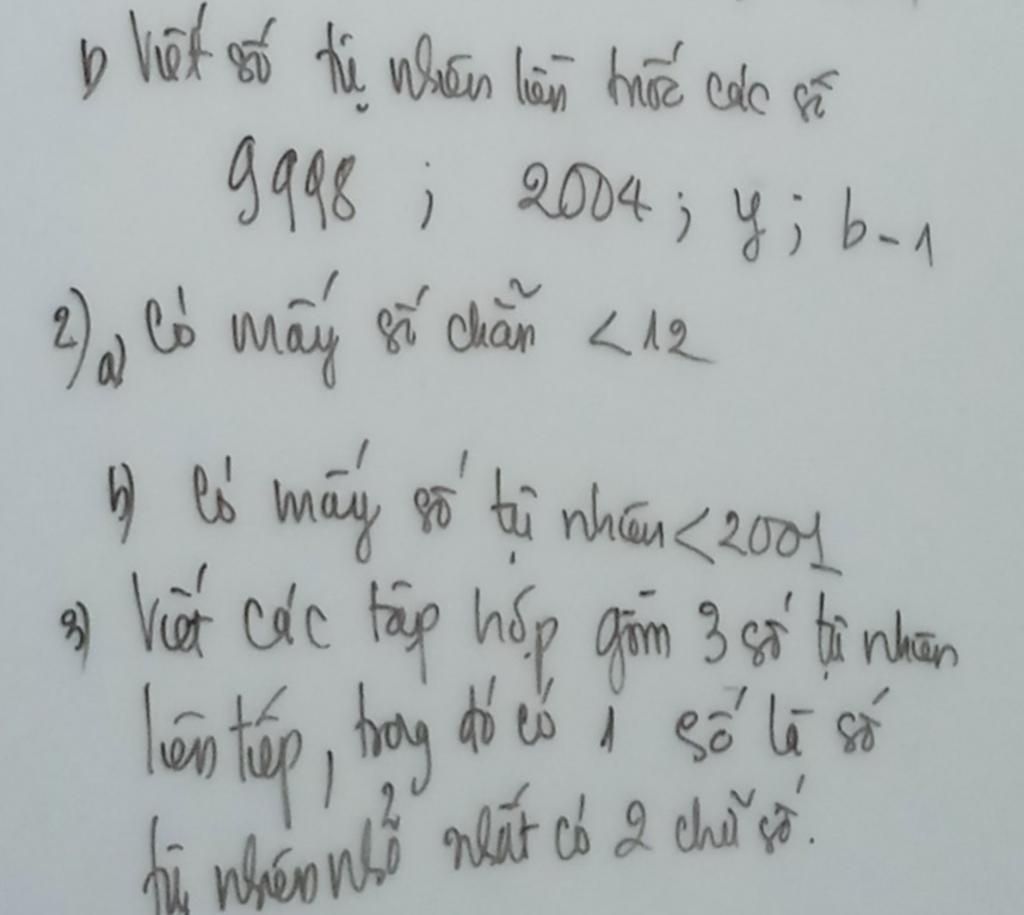 1) Viết số tự nhiên liền trước các số
9998 ; 2004 ; y ; b - 1
2) a) Có mấy số chẵn < 12
b) Có mấy số tự nhiên < 2001
3) Viết các tập hợp gồm 3 số tự nhiên
liên tiếp, trong đó có 1 số là số
tự nhiên nhỏ nhất có 2 chữ số.